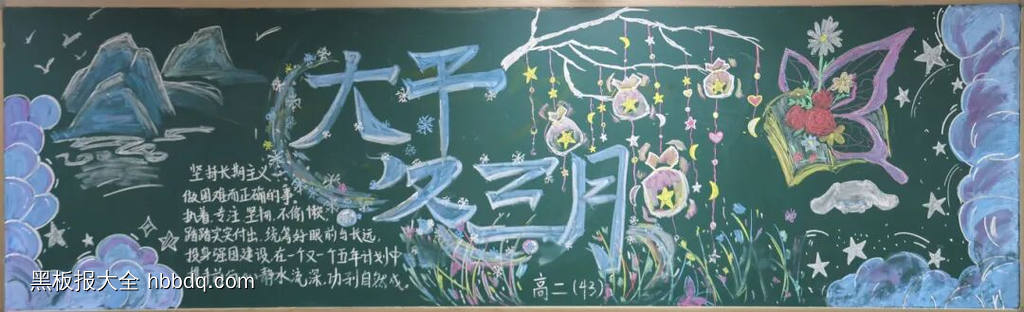 大干
冬三月
坚持长期主义
做困难而正确的事
执着、专注、坚韧、不懈
踏踏实实付出,统筹好眼前与长远
投身强国建设,在一个又一个五年计划中
静水流深,功到自然成。
高二(43)
黑板报大全 hbbdq.com